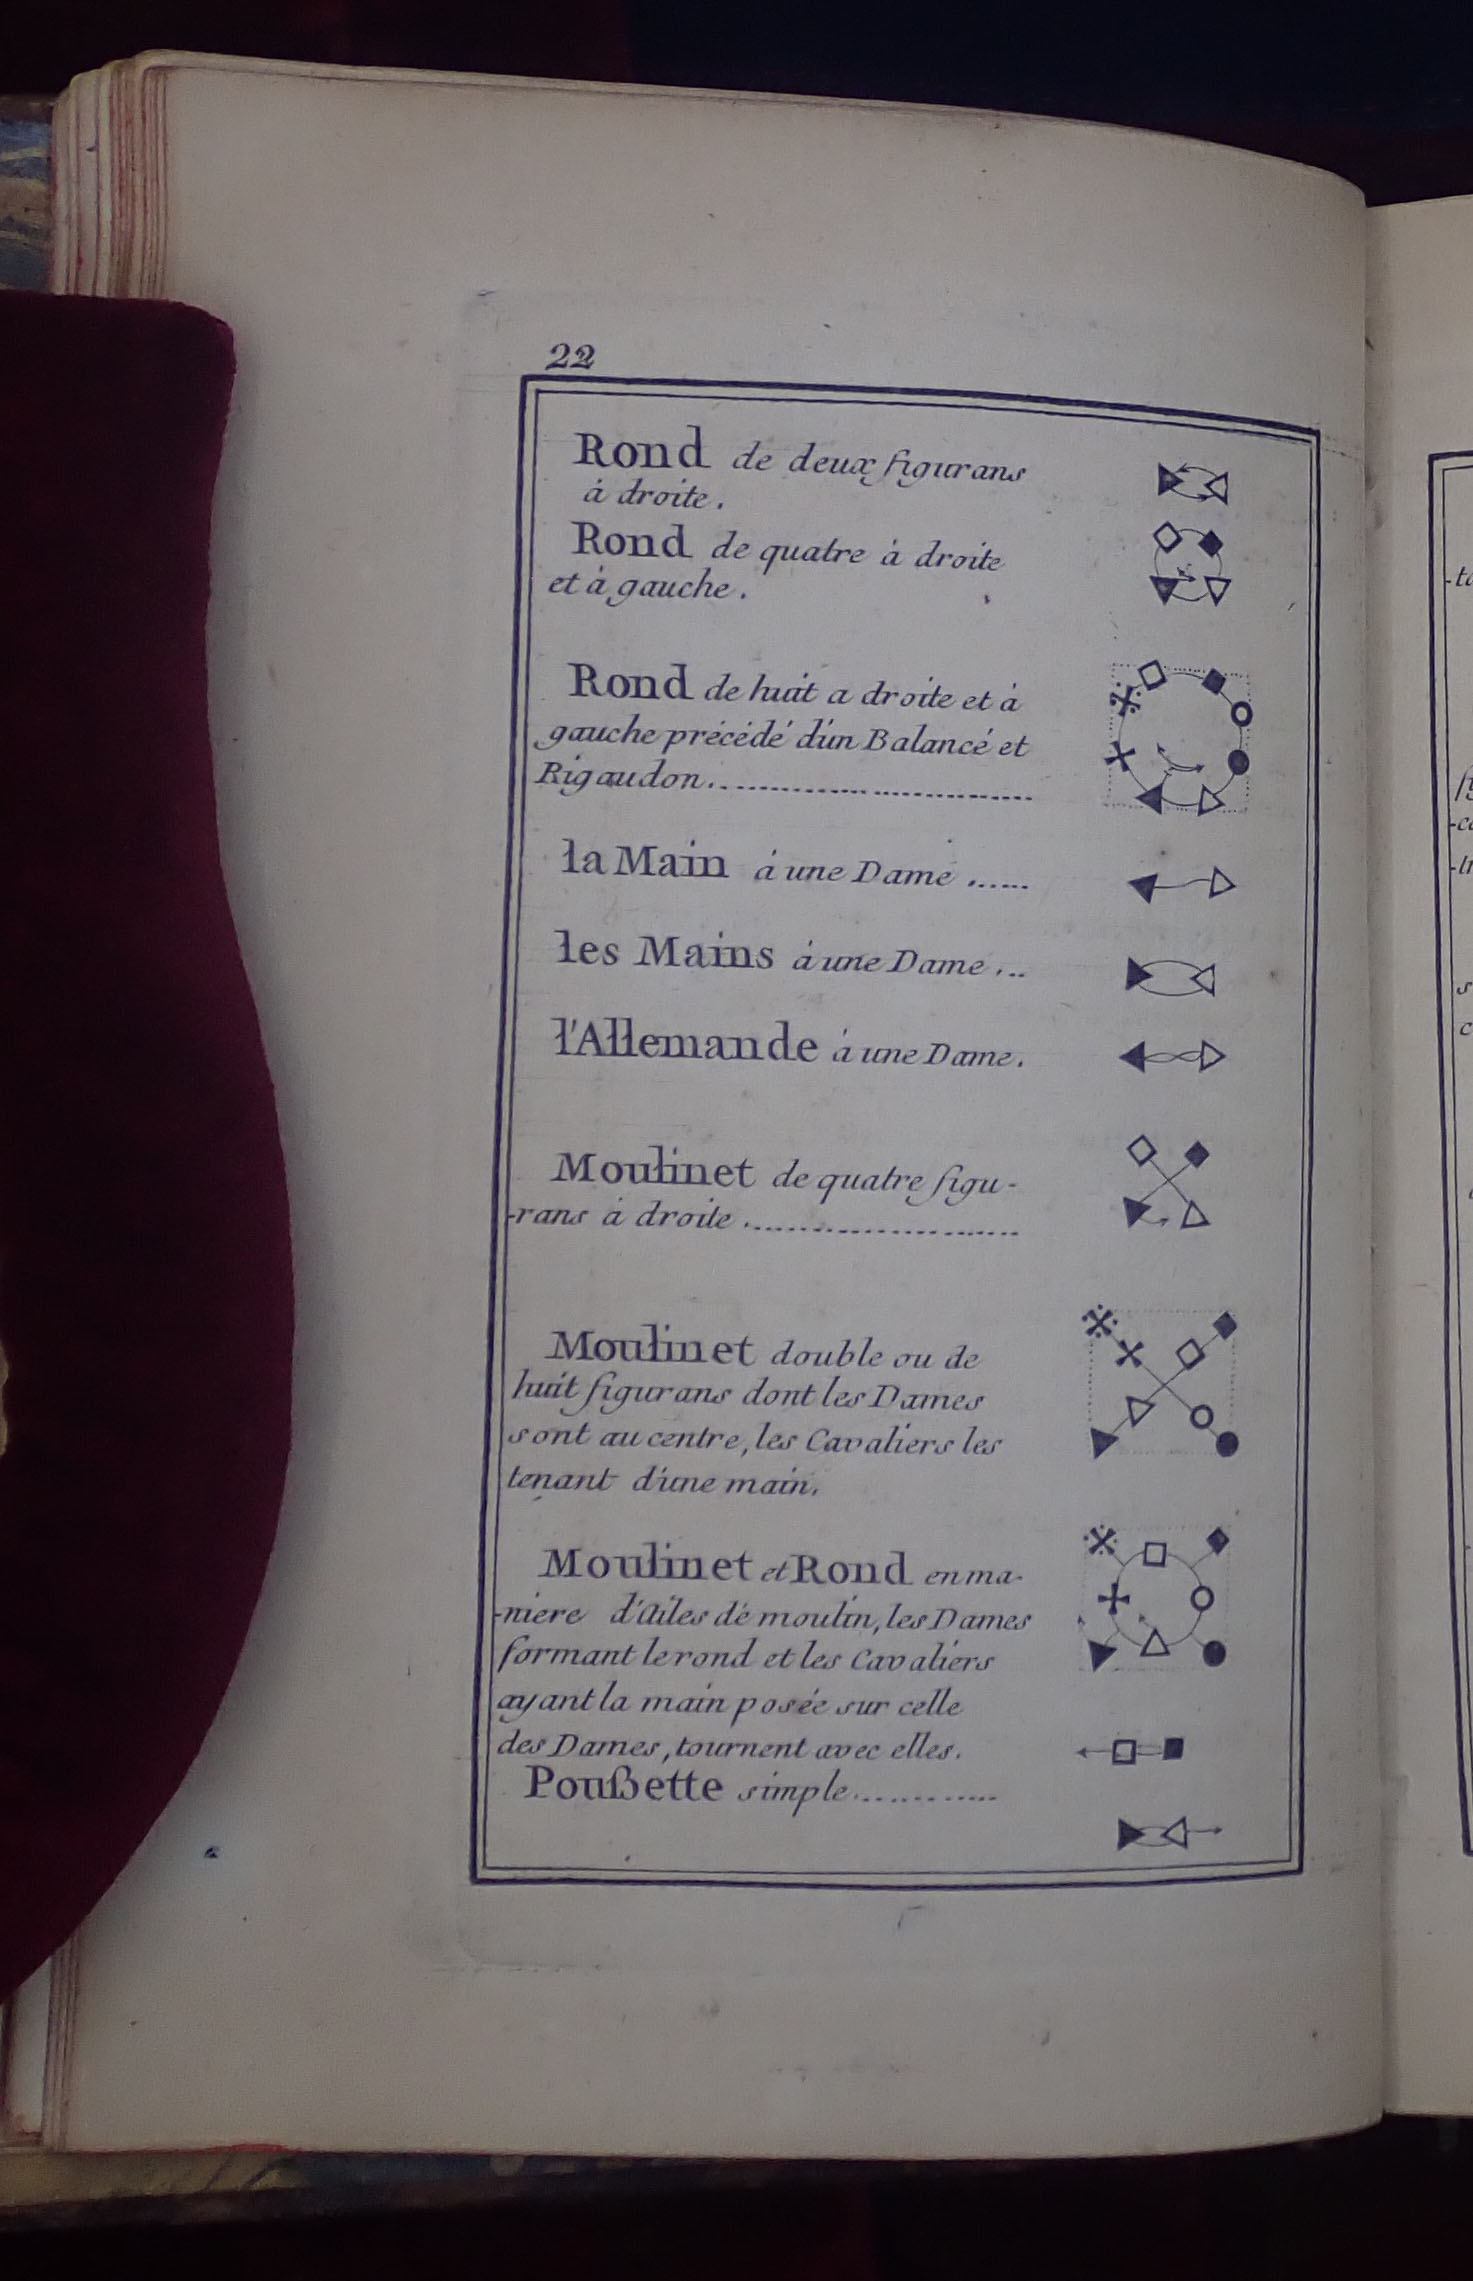 22
Rond de deux figurans
à droite.
Rond de quatre à droite
et à gauche.
Rond de huit a droite et à
gauche précédé d'un Balancé et
Rigaudon.
la Main à une Dame ......
les Mains à une Dame ...
l'Allemande à une Dame.
Moulinet de quatre figu-
-rans à droite
Moulinet double ou de
huit figurans dont les Dames
sont au centre, les Cavaliers les
tenant d'une main.
Moulinet et Rond en ma-
-niere d'Ailes de moulin, les Dames
formant le rond et les Cavaliers
ayant la main posée sur celle
des Dames, tournent avec elles.
Poußette simple